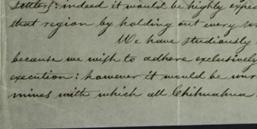 settlers: indeed it would be highly expe
that region by holding out every
We have studiously
because we wish to adhere exclusively
execution: however it would be
mines with which all Chihuahua